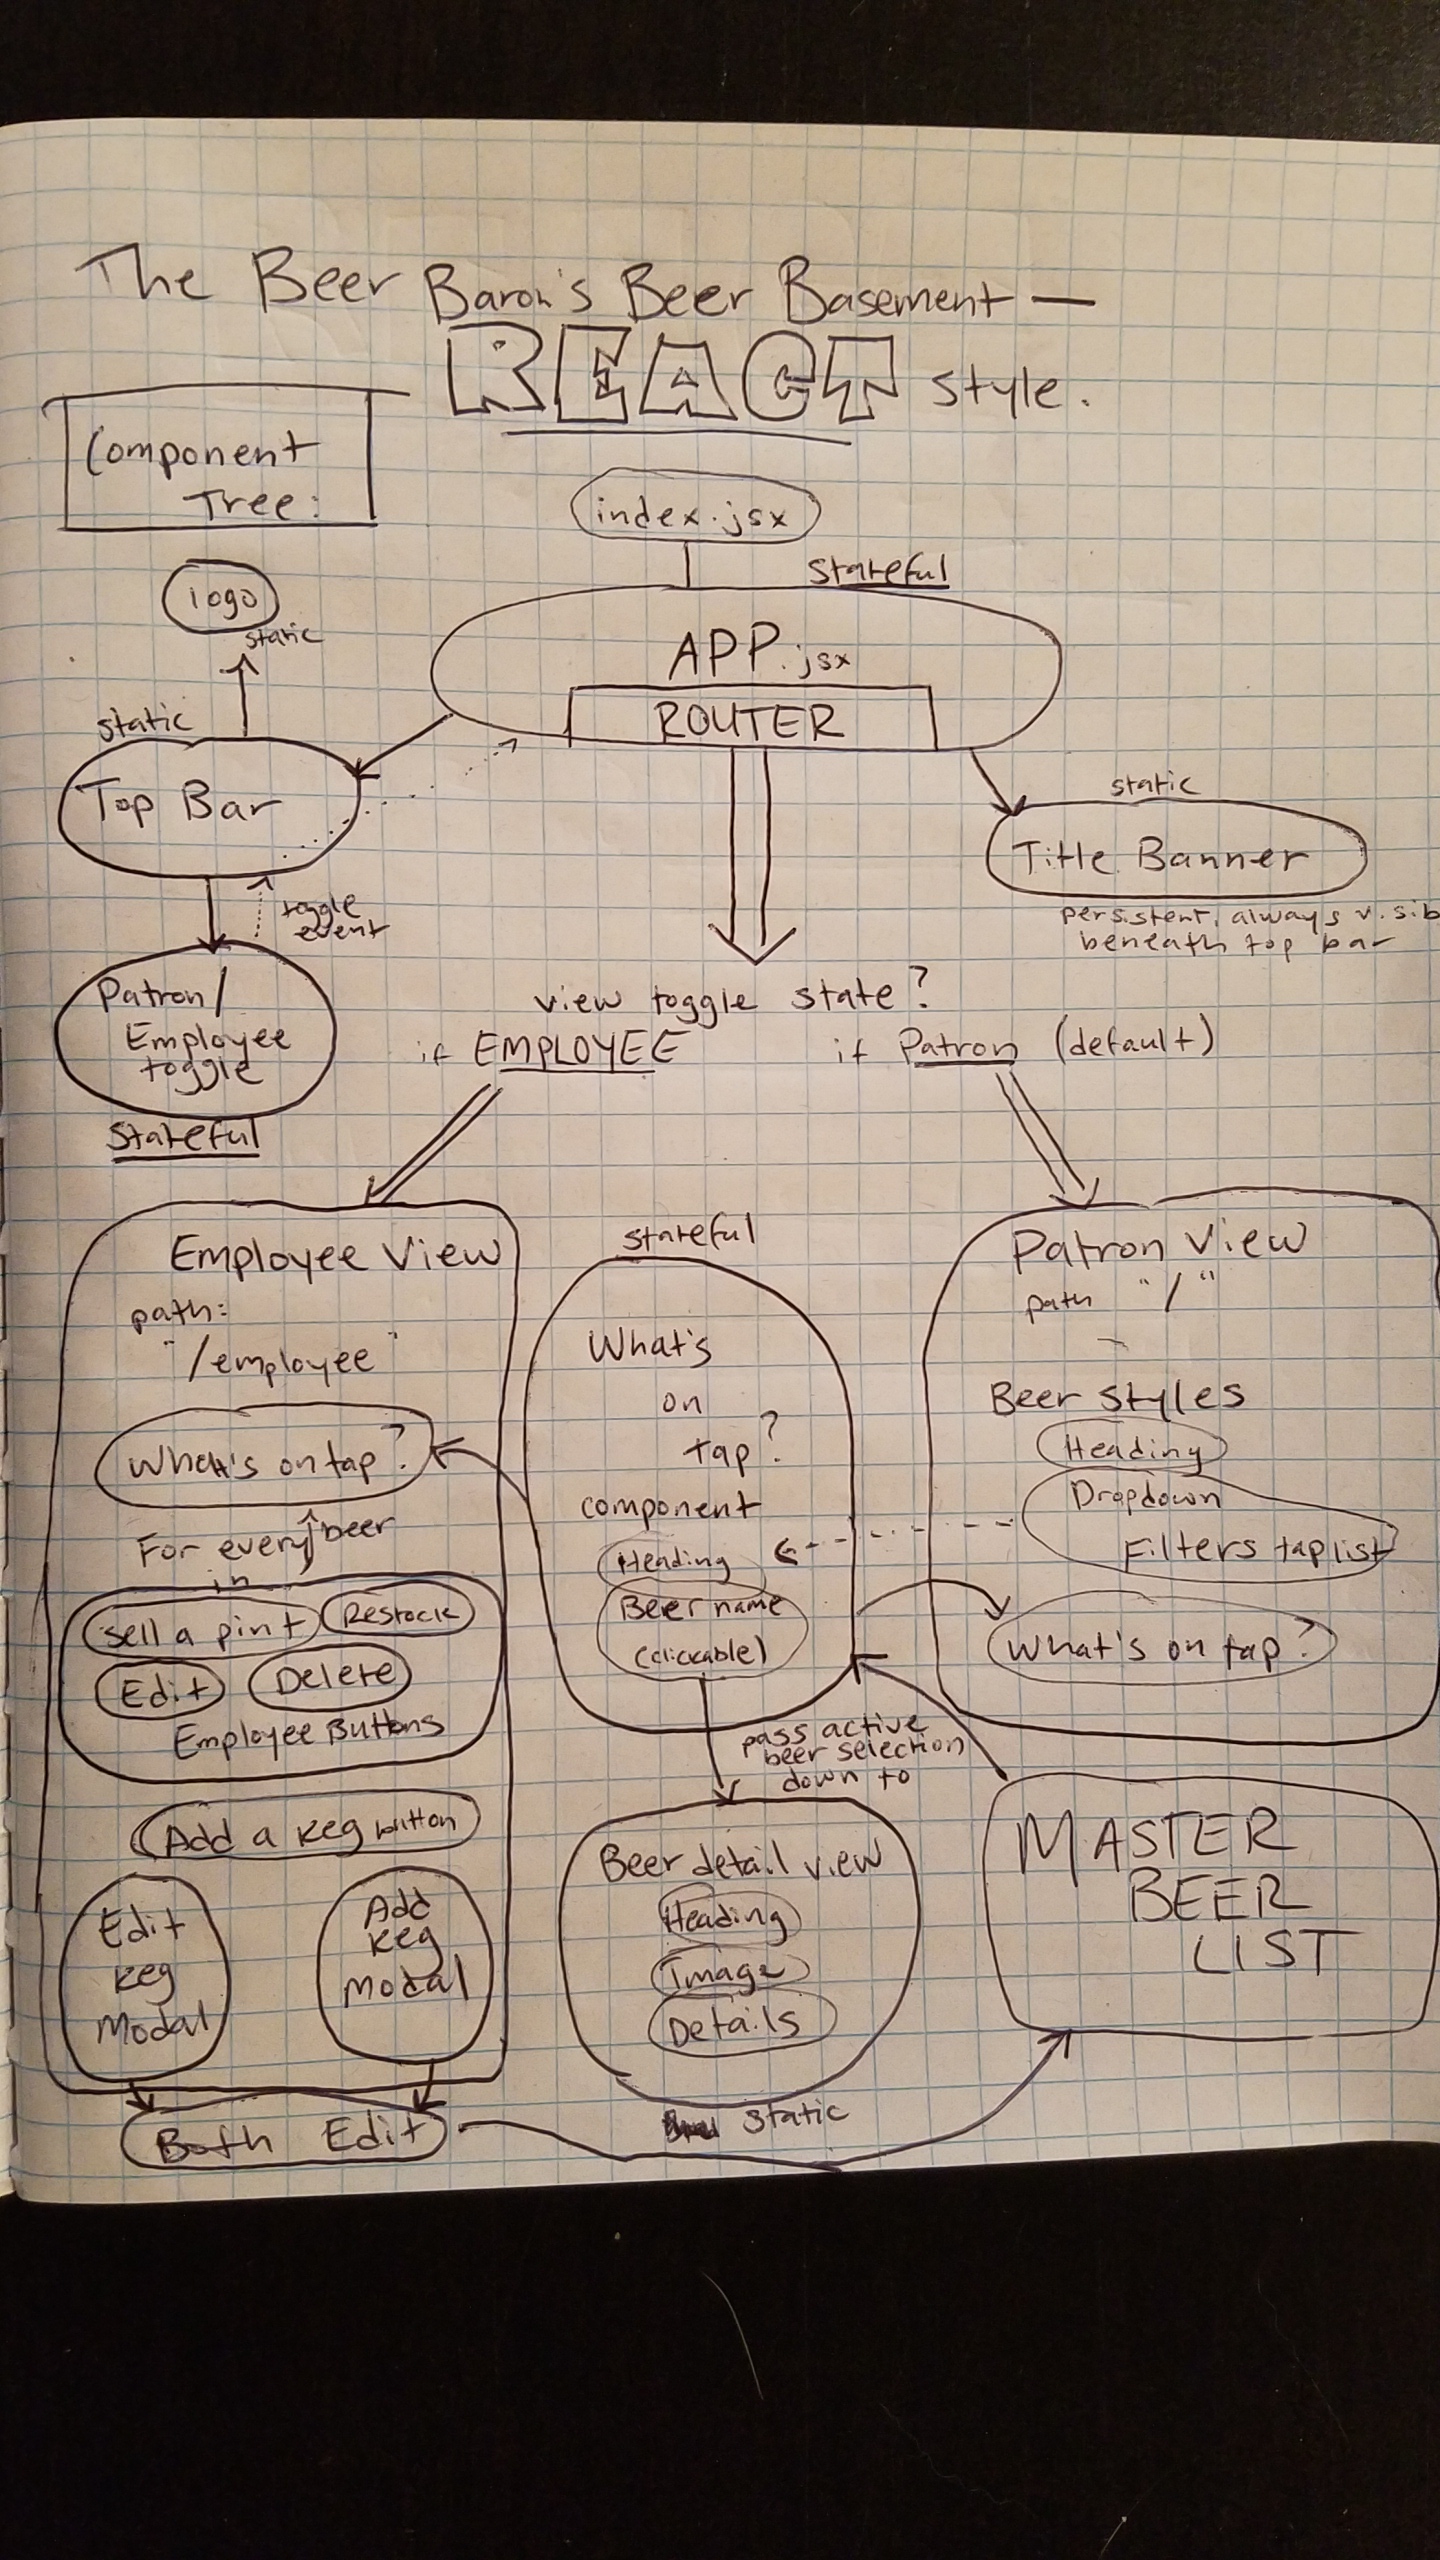 The Beer Baron's Beer Basement —
REACT style.
Component
Tree:
index.jsx
stateful
logo
static
APP.jsx
ROUTER
static
Top Bar
static
Title Banner
persistent, always
beneath top bar
toggle
event
Patron/
Employee
toggle
stateful
view toggle state?
if EMPLOYEE
if Patron (default)
Employee View
path:
"/employee"
What's on tap?
For every beer
in
Sell a pint
Restock
Edit
Delete
Employee Buttons
Add a keg button
Edit
keg
Modal
Add
keg
modal
Both Edit
stateful
What's
on
tap?
component
Heading
Beer name
(clickable)
pass active
beer selection
down to
Beer detail view
Heading
Image
Details
static
Patron View
path "/"
Beer styles
Heading
Dropdown
Filters taplist
What's on tap?
MASTER
BEER
LIST